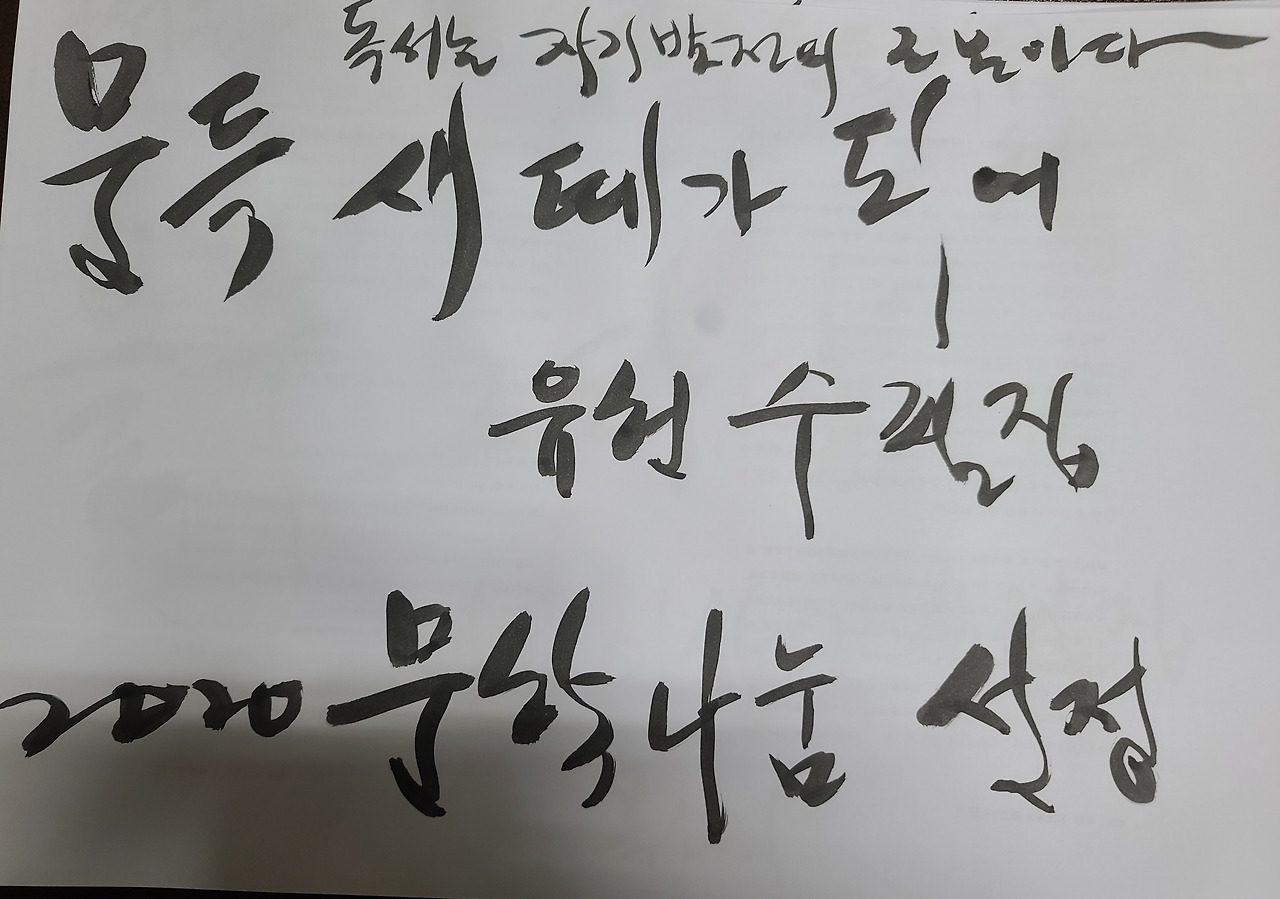 독서는 자기발전의 근본이다
문득 새 떼가 되어
유헌 수필집
2020 문학나눔 선정